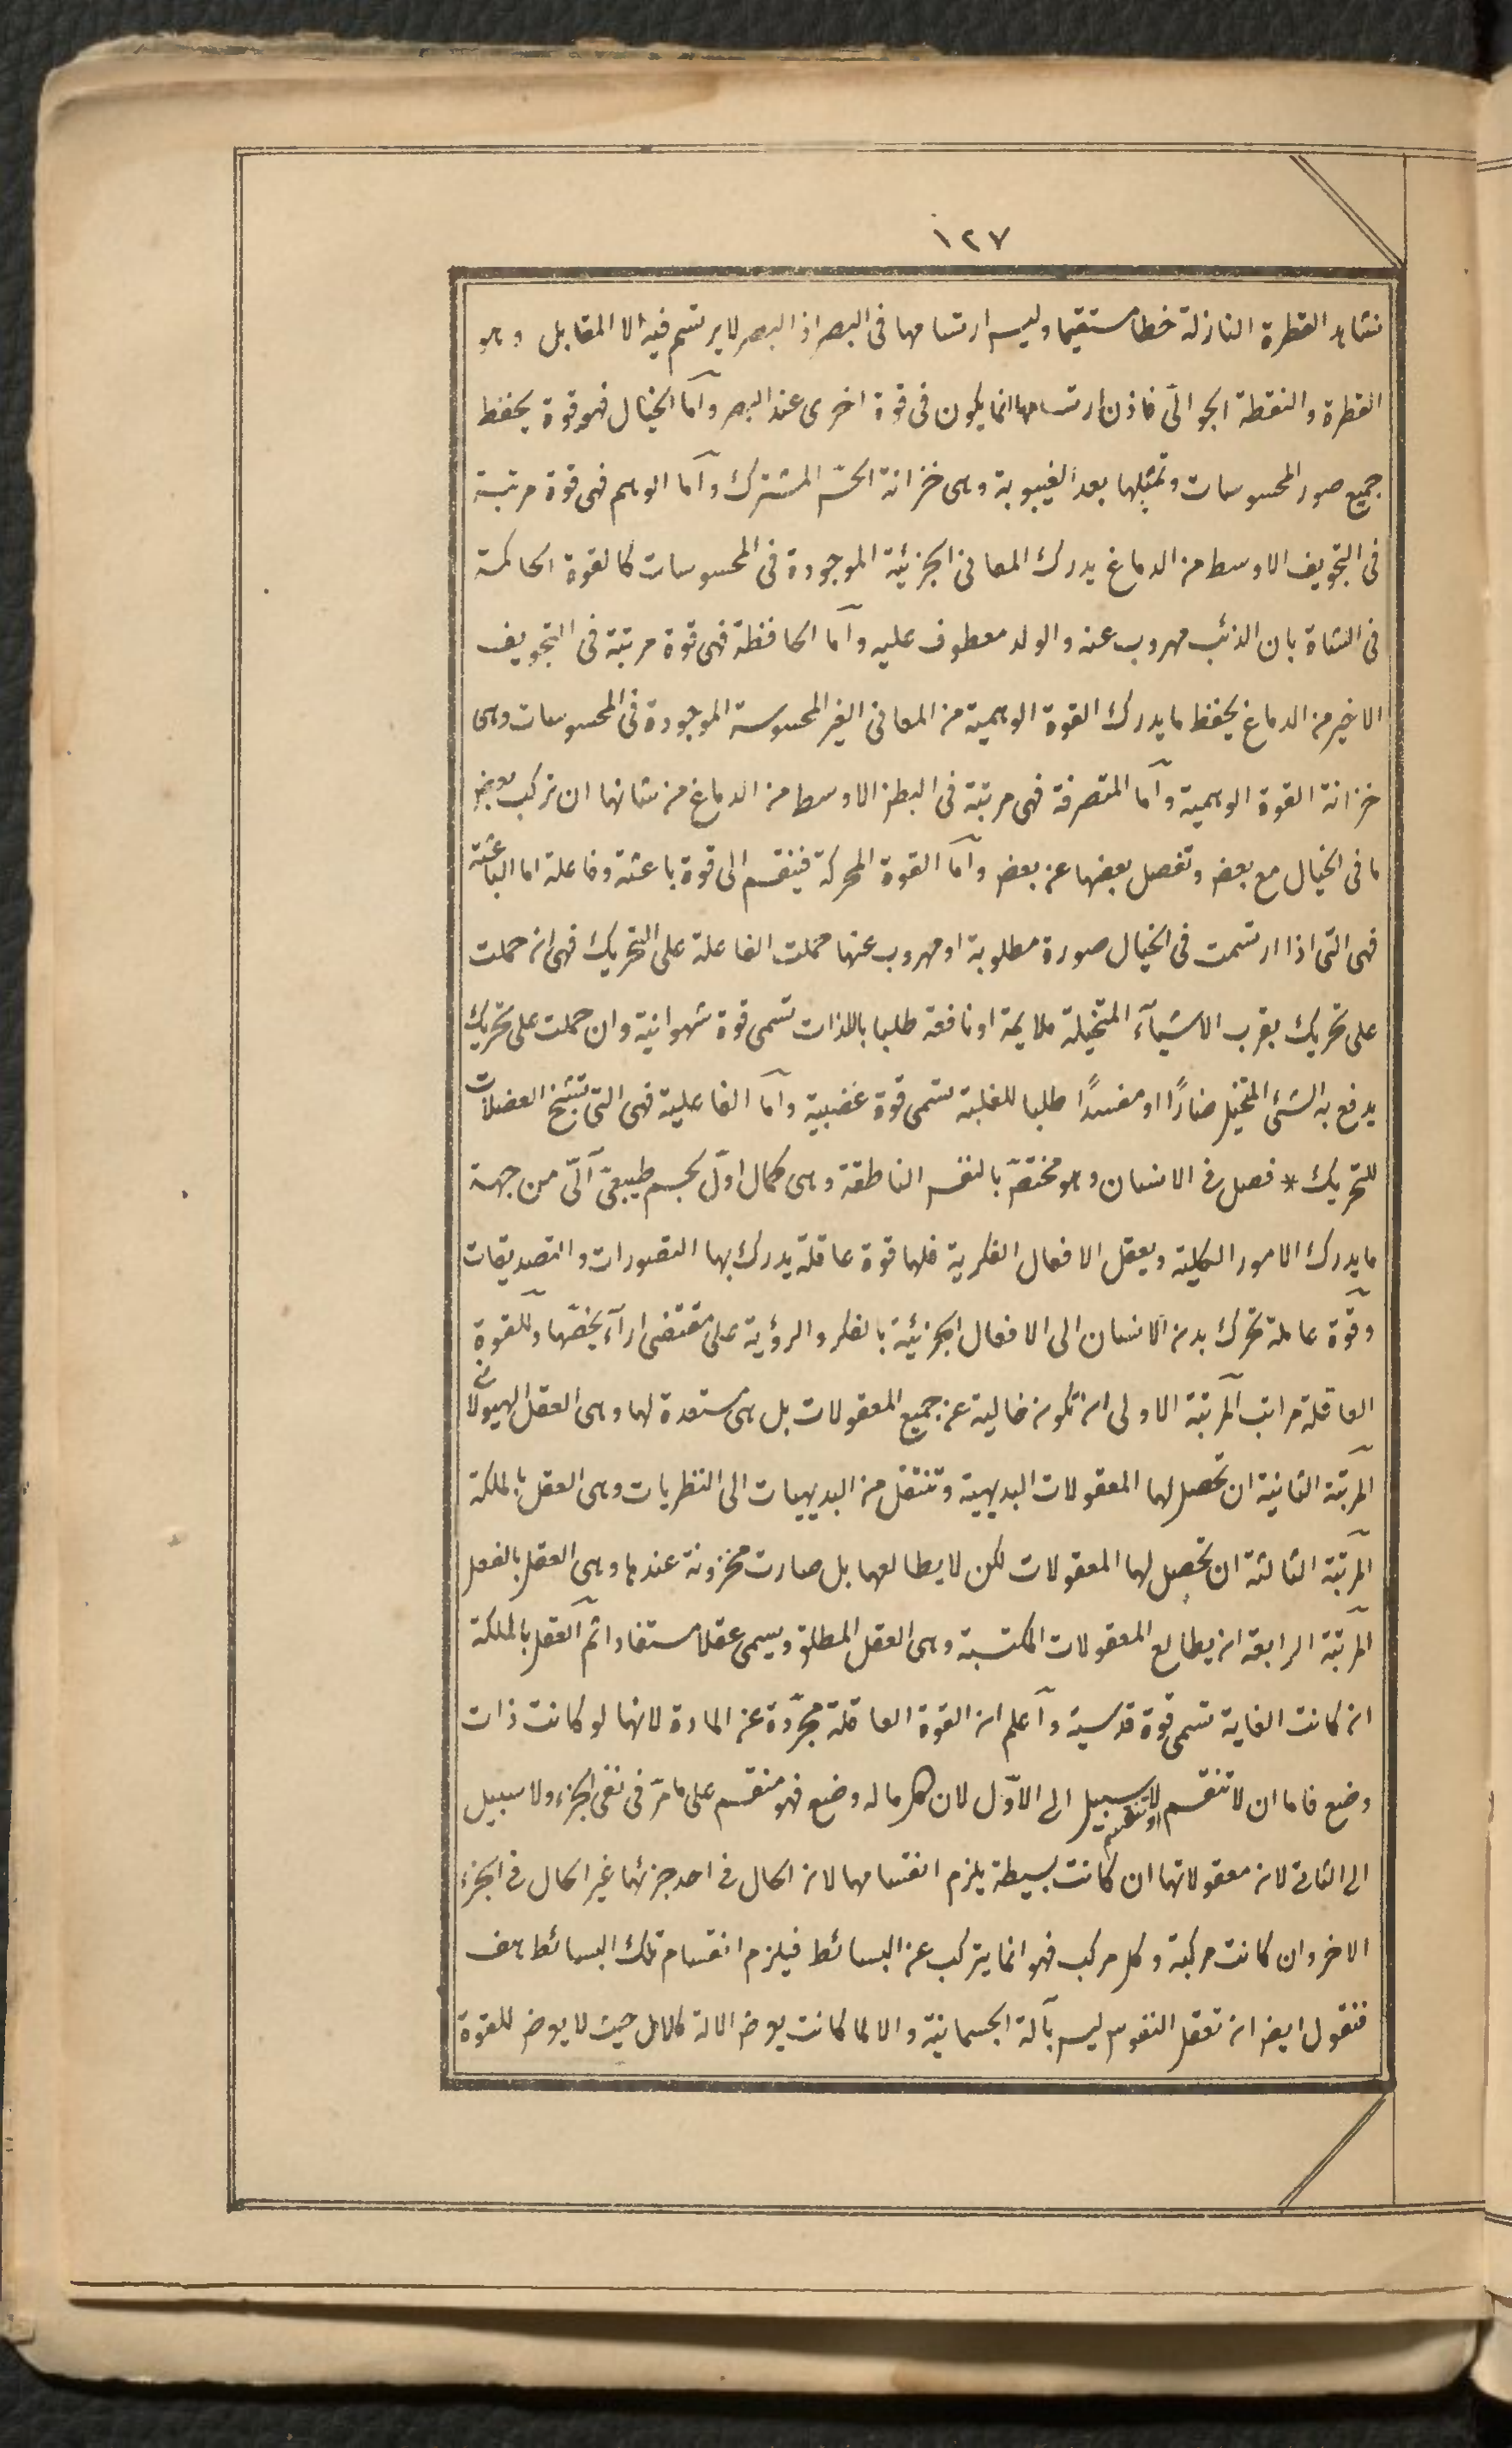 ١٢٧
نشاهد القطرة النازلة خطا مستقيما وليس ارتسامها فى البصر اذ البصر لا يرتسم فيه الا المقابل وهو
القطرة والنقطة الجوالى فاذن ارتسامها انما يكون فى قوة اخرى عند البصر وآما الخيال فهو قوة يحفظ
جميع صور المحسوسات وتمثيلها بعد الغيبوبة وهى خزانة الحسّ المشترك وآما الوهم فهى قوة مرتبة
فى التجويف الاوسط من الدماغ يدرك المعانى الجزئية الموجودة فى المحسوسات كالقوة الحاكمة
فى الشاة بان الذئب مهروب عنه والولد معطوف عليه وآما الحافظة فهى قوة مرتبة فى التجويف
الاخير من الدماغ يحفظ ما يدرك القوة الوهمية من المعانى الغير المحسوسة الموجودة فى المحسوسات وهى
خزانة القوة الوهمية وآما المتصرفة فهى مرتبة فى البطن الاوسط من الدماغ من شانها ان تركب بعض
ما فى الخيال مع بعض وتفصل بعضها عن بعض وآما القوة المحركة فينقسم الى قوة باعثة وفاعلة اما الباعثة
فهى التى اذا ارتسمت فى الخيال صورة مطلوبة او مهروب عنها حملت الفاعلة على التحريك فهى ان حملت
على تحريك بقرب الاشيآء المتخيلة ملايمة او نافعة طلبا باللذات تسمى قوة شهوانية وان حملت على تحريك
يدفع به الشئ المتخيل ضارًا او مفسدًا طلبا للغلبة تسمى قوة غضبية وآما الفاعلية فهى التى تشنج العضلات
للتحريك * فصل فى الانسان وهو مختصّ بالنفس الناطقة وهى كمال اوّل لجسم طبيعىّ آلىّ من جهة
ما يدرك الامور الكلية ويعقل الافعال الفكرية فلها قوة عاقلة يدرك بها التصورات والتصديقات
وقوة عاملة تحرك بدن الانسان الى الافعال الجزئية بالفكر والرؤية على مقتضى ارآء يخصّها وللقوة
العاقلة مراتب المرتبة الاولى ان تكون خالية عن جميع المعقولات بل هى مستعدة لها وهى العقل الهيولانى
المرتبة الثانية ان تحصل لها المعقولات البديهية وتنتقل من البديهيات الى النظريات وهى العقل بالملكة
المرتبة الثالثة ان تحصل لها المعقولات لكن لا يطالعها بل صارت مخزونة عندها وهى العقل بالفعل
المرتبة الرابعة ان يطالع المعقولات المكتسبة وهى العقل المطلق ويسمى عقلا مستفادا ثم العقل بالملكة
ان كانت الغاية تسمى قوة قدسية وآعلم ان القوة العاقلة مجرّدة عن المادة لانها لو كانت ذات
وضع فاما ان لا تنقسم او تنقسم لا سبيل الى الاوّل لان كل ما له وضع فهو منقسم على ما مرّ فى نفى الجزء ولا سبيل
الى الثانى لان معقولاتها ان كانت بسيطة يلزم انقسامها لان الحال فى احد جزئها غير الحال فى الجزء
الاخر وان كانت مركبة وكل مركب فهو انما يتركب عن البسائط فيلزم انقسام تلك البسائط هف
فنقول ايضا ان تعقل النفوس ليس بآلة الجسمانية والا لما كانت يعرض الالة كلال حيث لا يعرض للقوة